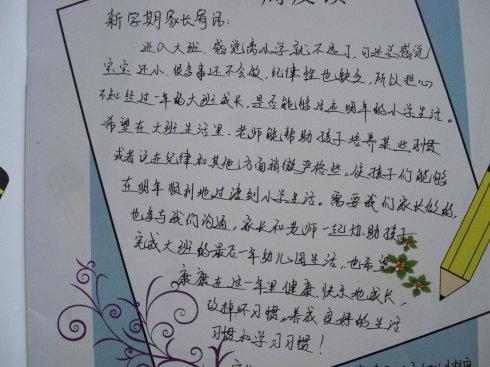 新学期家长寄语:
进入大班,感觉离小学就不远了,可是总感觉
宝宝还小,很多事还不会做,纪律性也缺乏,所以担心
不知经过一年的大班成长,是否能够适应明年的小学生活。
希望在大班生活里,老师能帮助孩子培养某些习惯
或者说在纪律和其他方面稍微严格些,使孩子们能够
在明年顺利地过渡到小学生活。需要我们家长做的,
也多与我们沟通,家长和老师一起协助孩子
完成大班的最后一年幼儿园生活,也希望
康康在这一年里健康、快乐地成长,
改掉坏习惯,养成良好的生活
习惯和学习习惯!